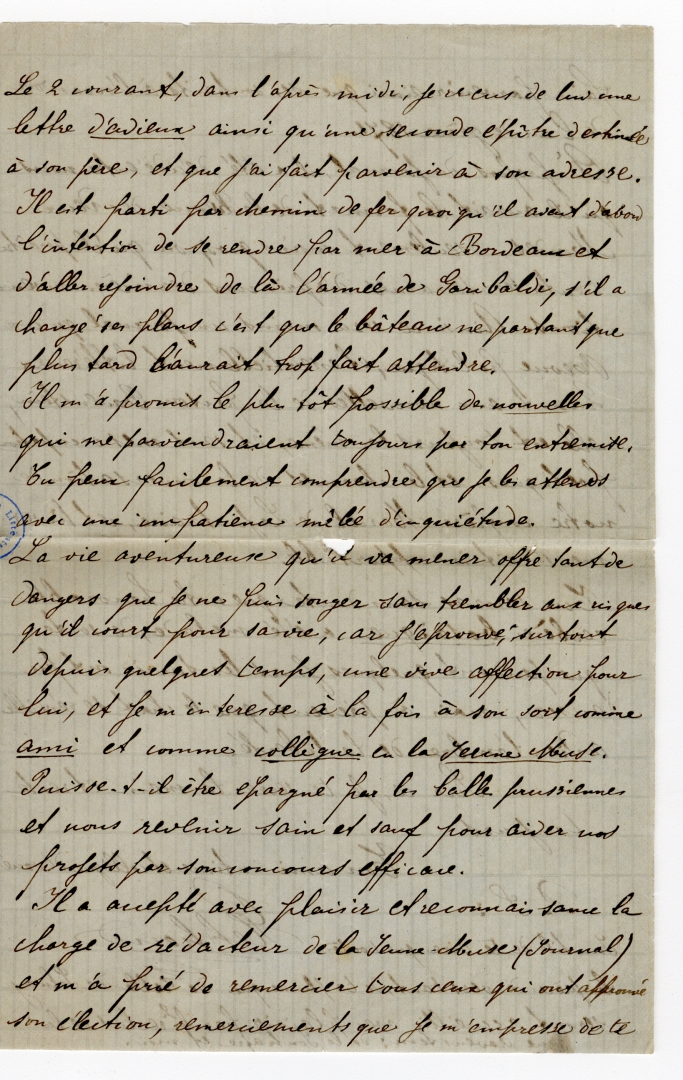 Le 2 courant, dans l'après midi, je reçus de lui une
lettre d'adieux ainsi qu'une seconde epître destinée
à son père, et que j'ai fait parvenir à son adresse.
Il est parti par chemin de fer quoiqu'il avait d'abord
l'intention de se rendre par mer à Bordeaux et
d'aller rejoindre de là l'armée de Garibaldi, s'il a
changé ses plans c'est que le bâteau ne partant que
plus tard l'aurait trop fait attendre.
Il m'a promis le plus tôt possible des nouvelles
qui me parviendraient toujours par ton entremise.
Tu peux facilement comprendre que je les attends
avec une impatience mêlée d'inquiétude.
La vie aventureuse qu'il va mener offre tant de
dangers que je ne puis songer sans trembler aux risques
qu'il court pour sa vie, car j'éprouve, surtout
depuis quelques temps, une vive affection pour
lui, et je m'interesse à la fois à son sort comme
ami et comme collègue en la Jeune Muse.
Puisse-t-il être epargné par les balle prussiennes
et nous revenir sain et sauf pour aider nos
projets par son concours efficace.
Il a accepté avec plaisir et reconnaissance la
charge de rédacteur de la Jeune-Muse (Journal)
et m'a prié de remercier tous ceux qui ont
son élection, remerciements que je m'empresse de te